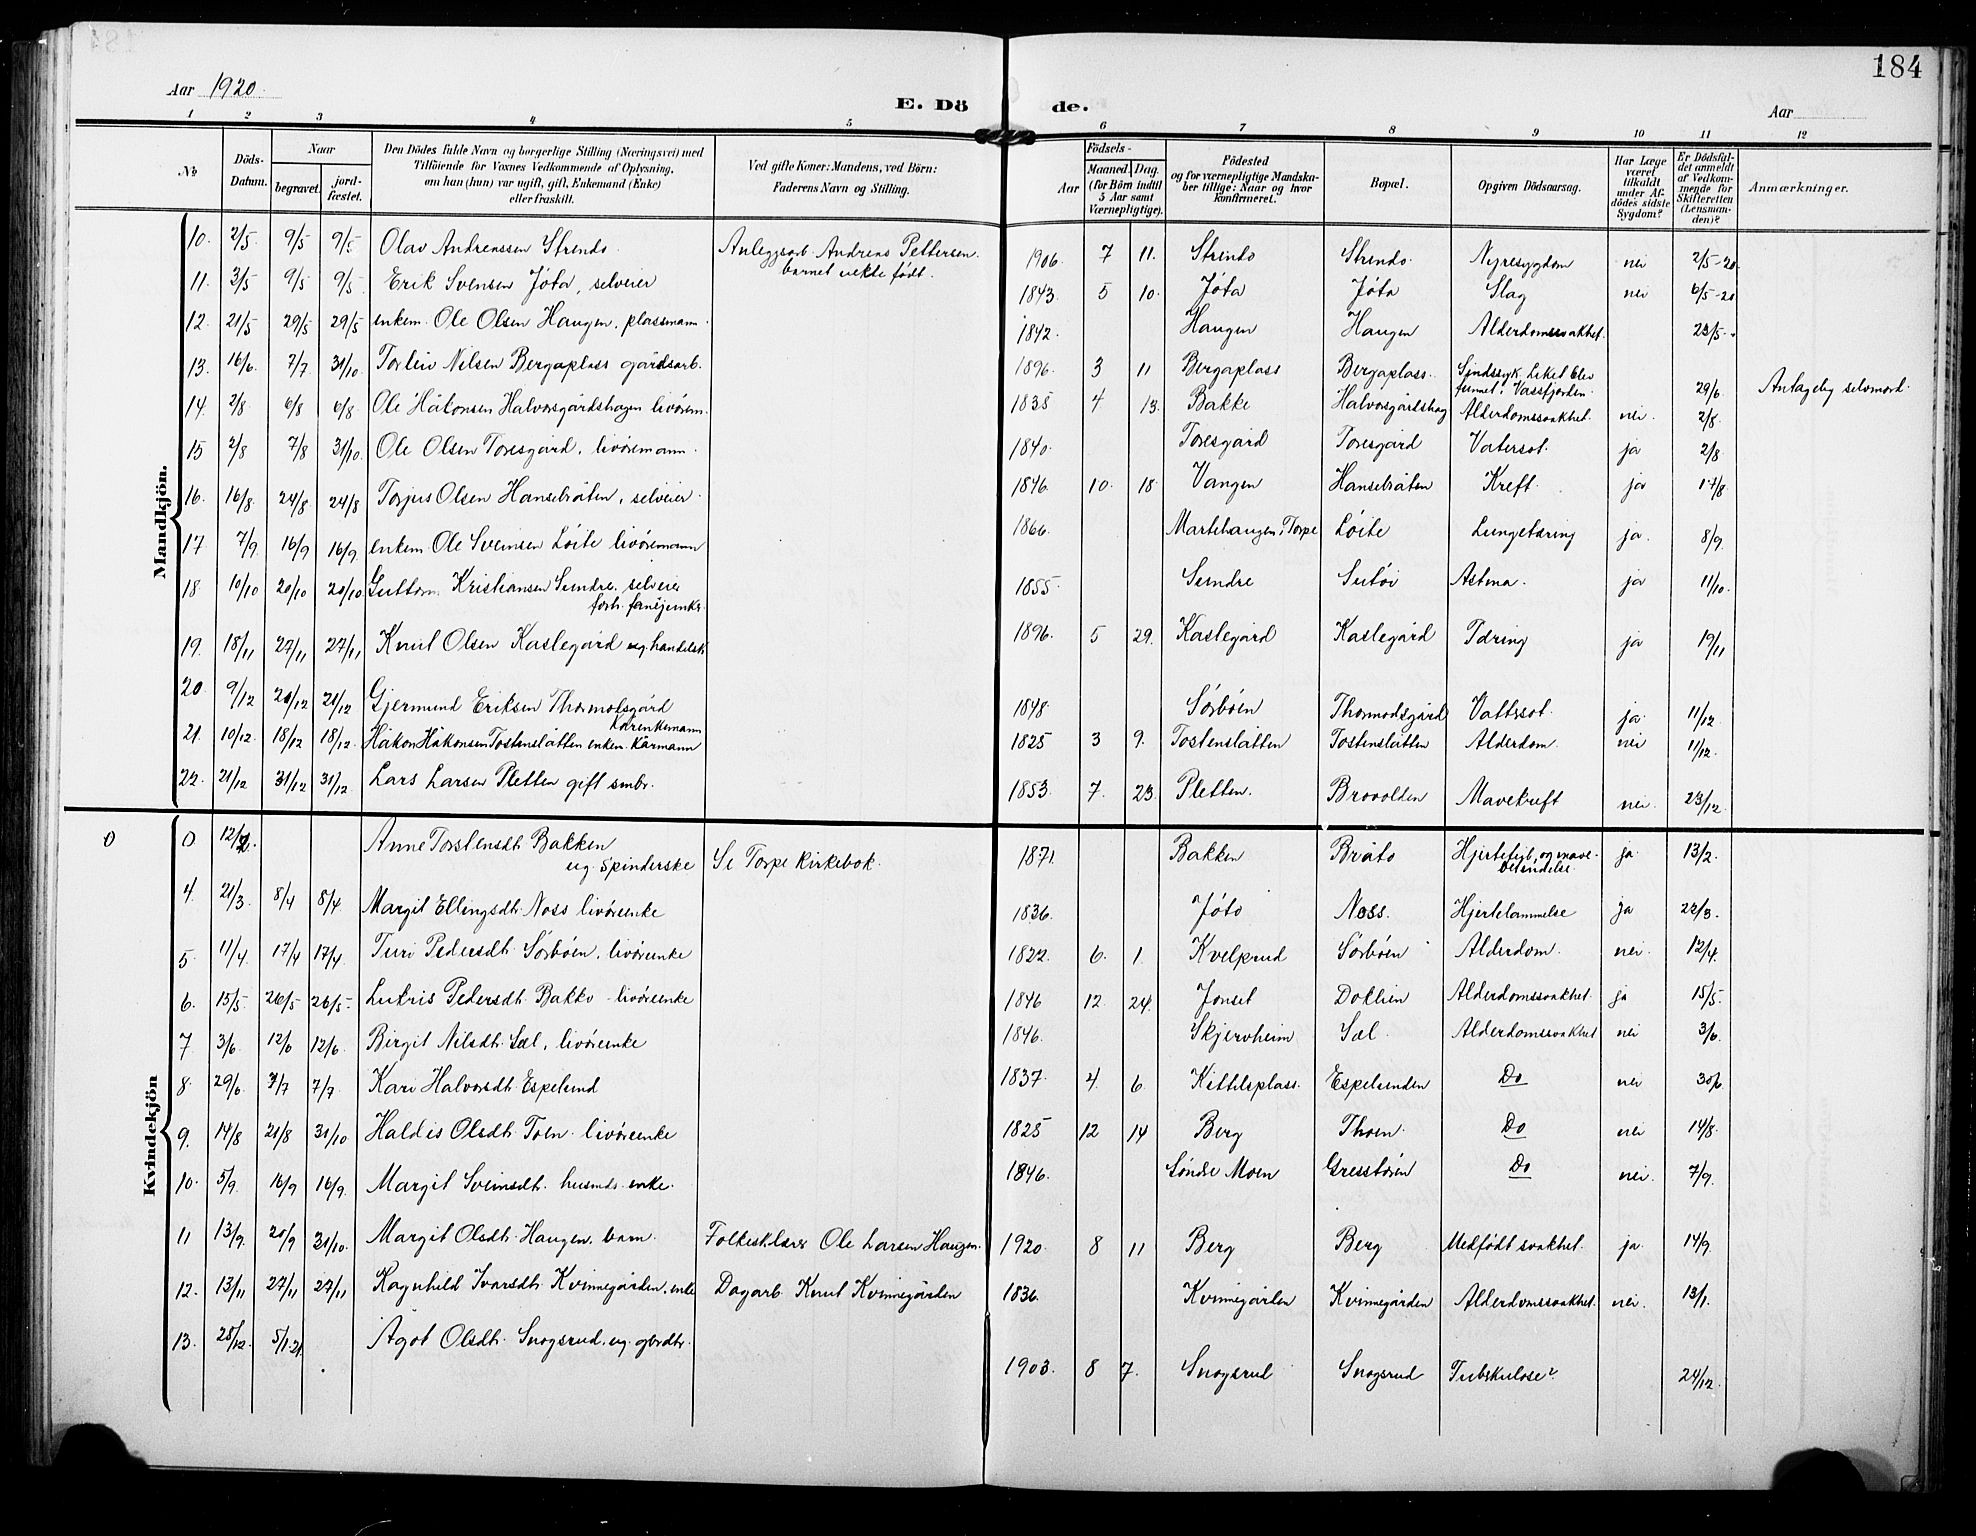 184
Aar 1920.
E. Dö de.
Aar
1 2 3 4 5 6 7 8 9 10 11 12
No Döds-Datum. Naar begravet. jord-fæstet. Den Dödes fulde Navn og borgerlige Stilling (Næringsvei) med Tilföiende for Voxnes Vedkommende af Oplysning, om han (hun) var ugift, gift, Enkemand (Enke) eller fraskilt. Ved gifte Koner: Mandens, ved Börn: Faderens Navn og Stilling. Födsels- Aar Maaned. Dag. (for Börn indtil 5 Aar samt Værnepligtige). Födested og for værnepligtige Mandska-ber tillige: Naar og hvor konfirmeret. Bopæl. Opgiven Dödsaarsag. Har Læge været tilkaldt under Af-dödes sidste Sygdom? Er Dödsfal-det anmeldt af Vedkom-mende for Skifteretten (Lensman-den)? Anmærkninger.
Mandkjön.
10. 2/5. 9/5 9/5 Olav Andreassen Strendo. Anleggsarb. Andreas Pettersen. barnet uekte født. 1906 7 11. Strendo Strendo. Nyresygdom nei 2/5-20.
11. 3/5 9/5 9/5. Erik Svensen Jøta, selveier 1843. 5 10. Jøta Jøta Slag nei 6/5-20
12. 21/5 29/5 29/5 enkem. Ole Olsen Haugen, plassmann. 1842. Haugen Haugen Alderdomssvakhet. 23/5-
13. 16/6 7/7. 31/10. Torleiv Nilsen Bergaplass gårdsarb. 1896. 3 11 Bergaplass Bergaplass. Sindssyk. Liket blev funnet i Vassfjorden. 29/6 Antagelig selvmord.
14. 2/8 6/8 6/8. Ole Håkonsen Halvorsgårdshagen livørem. 1835 4 13. Bakke Halvorsgårdshag Alderdomssvakhet. nei. 2/8.
15 2/8 7/8 31/10. Ole Olsen Toresgård, livøremann. 1840. Toresgård Toresgård Vatersot. ja 2/8
16. 16/8. 24/8 24/8 Torjus Olsen Hanselråten, selveier. 1846. 10. 18. Vangen Hanselråten Kreft. ja 17/8
17 7/9 16/9 16/9. enkem. Ole Sveinsen Løite livøremann 1866 Martehaugen, Torpe Løite Lungetæring ja. 8/9.
18. 10/10 20/10 20/10 Guttorm Kristiansen Sundre. selveier forh. fanejunker. 1855. Sundre Sutøi Astma. ja 11/10.
19. 18/11 27/11 27/11 Knut Olsen Kaslegård ug. handelsb. 1896. 5 29. Kaslegård Kaslegård Tæring ja 19/11
20. 9/12 20/12 21/12 Gjermund Eriksen Thormodsgård Kårenkemann 1848. Sørbøen Thormodsgård Vattersot. ja. 11/12.
21. 10/12. 18/12 18/12. Håkon Håkonsen Tostenslåtten enkem. Kårmann 1825 3 9. Tostenslåtten Tostenslåtten Alderdom. nei 11/12.
22. 21/12 31/12 31/12. Lars Larsen Pletten gift smbr. 1853. 7. 23. Pletten. Brovolden Mavekreft nei. 23/12.
Kvindekjön
0 0 12/2. Anne Torstensdt. Bakken ug. spinderske Se Torpe kirkebok. 1871. Bakken Bråto Hjertefejl, og mave-betændelse. ja. 13/2.
4. 21/3. 8/4 8/4. Margit Ellingsdt. Noss livøreenke 1836. Jøto Noss. Hjertelammelse ja 22/3.
5. 11/4. 17/4 17/4. Turi Pedersdt. Sørbøen, livøreenke 1822. 6. 1. Kvelprud Sørbøen Alderdom. nei. 12/4.
6. 15/5. 26/5 26/5- Lukris Pedersdt. Bakko - livøreenke 1846 12. 24. Jonset Doklien Alderdomssvakhet. ja 15/5.
7 3/6. 12/6 12/6. Birgit Nilsdt. Sæl, livøreenke 1846. Skjervheim Sæl. Alderdomssvakhet nei 3/6.
8. 29/6 7/7 7/7. Kari Halvorsdt. Espelund 1837. 4. 6. Kittilsplass. Espelunden Do nei 30/6.
9. 14/8 21/8 31/10 Haldis Olsdt. Toen. livøreenke 1825 12 14 Berg Thoen. Do nei 14/8.
10. 5/9. 16/9 16/9. Margit Sveinsdt. husmds. enke. 1846. Søndre Moen Do nei. 7/9.
11 13/9. 20/9 31/10. Margit Olsdt. Haugen. barn. Folkesklærer Ole Larsen Haugen. 1920. 8 11 Berg Berg Medfødt svakhet. ja. 14/9.
12. 13/11 27/11 27/11 Ragnhild Ivarsdt. Kvinnegården. enke Dagarb. Knut Kvinnegården 1836. Kvinnegården Kvinnegården Alderdomssvakhet. nei. 13/1.
13. 23/12. 5/1.21. Ågot Olsdt. Snogsrud, ug. gbrdtr. 1903. 8 7. Snogsrud Snogsrud Tuberkulose? 24/12.